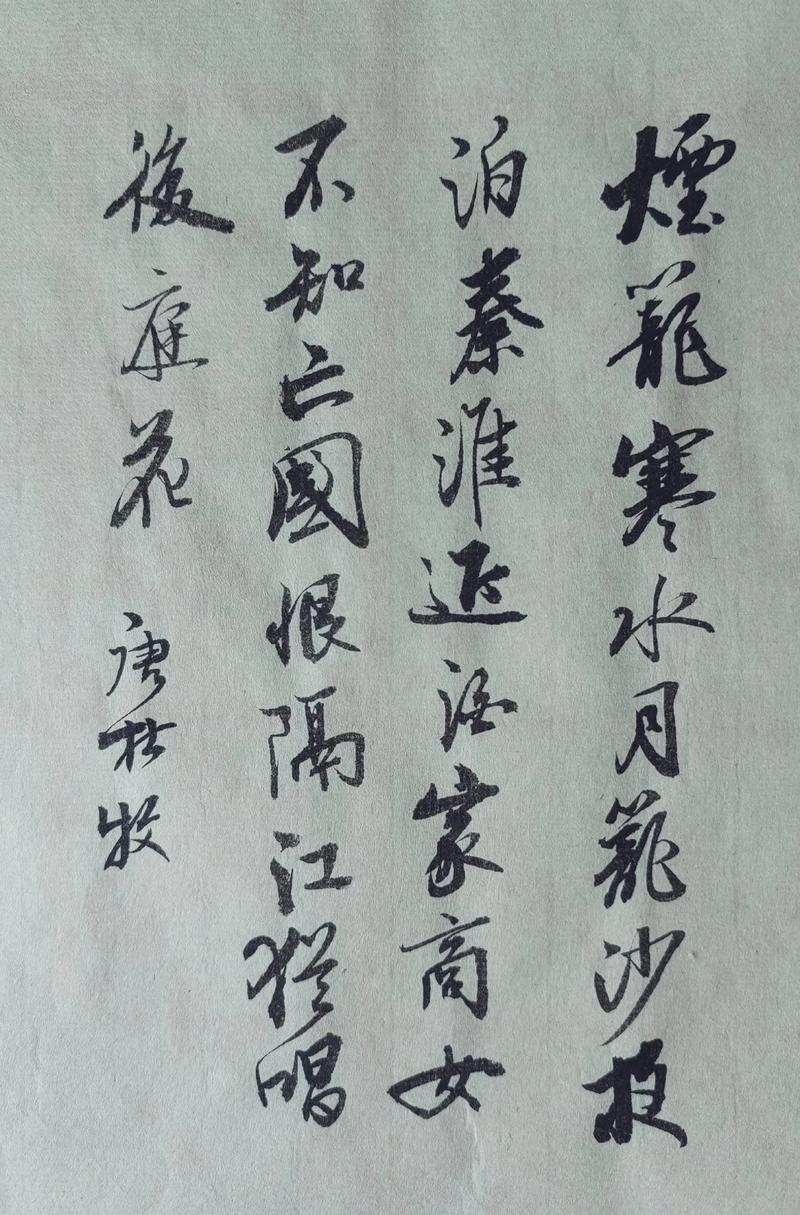 煙籠寒水月籠沙夜
泊秦淮近酒家商女
不知亡國恨隔江猶唱
後庭花 唐杜牧